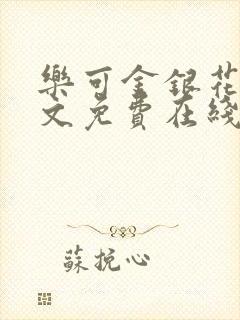 樂可金銀花
文免費在綫
蘇挽心